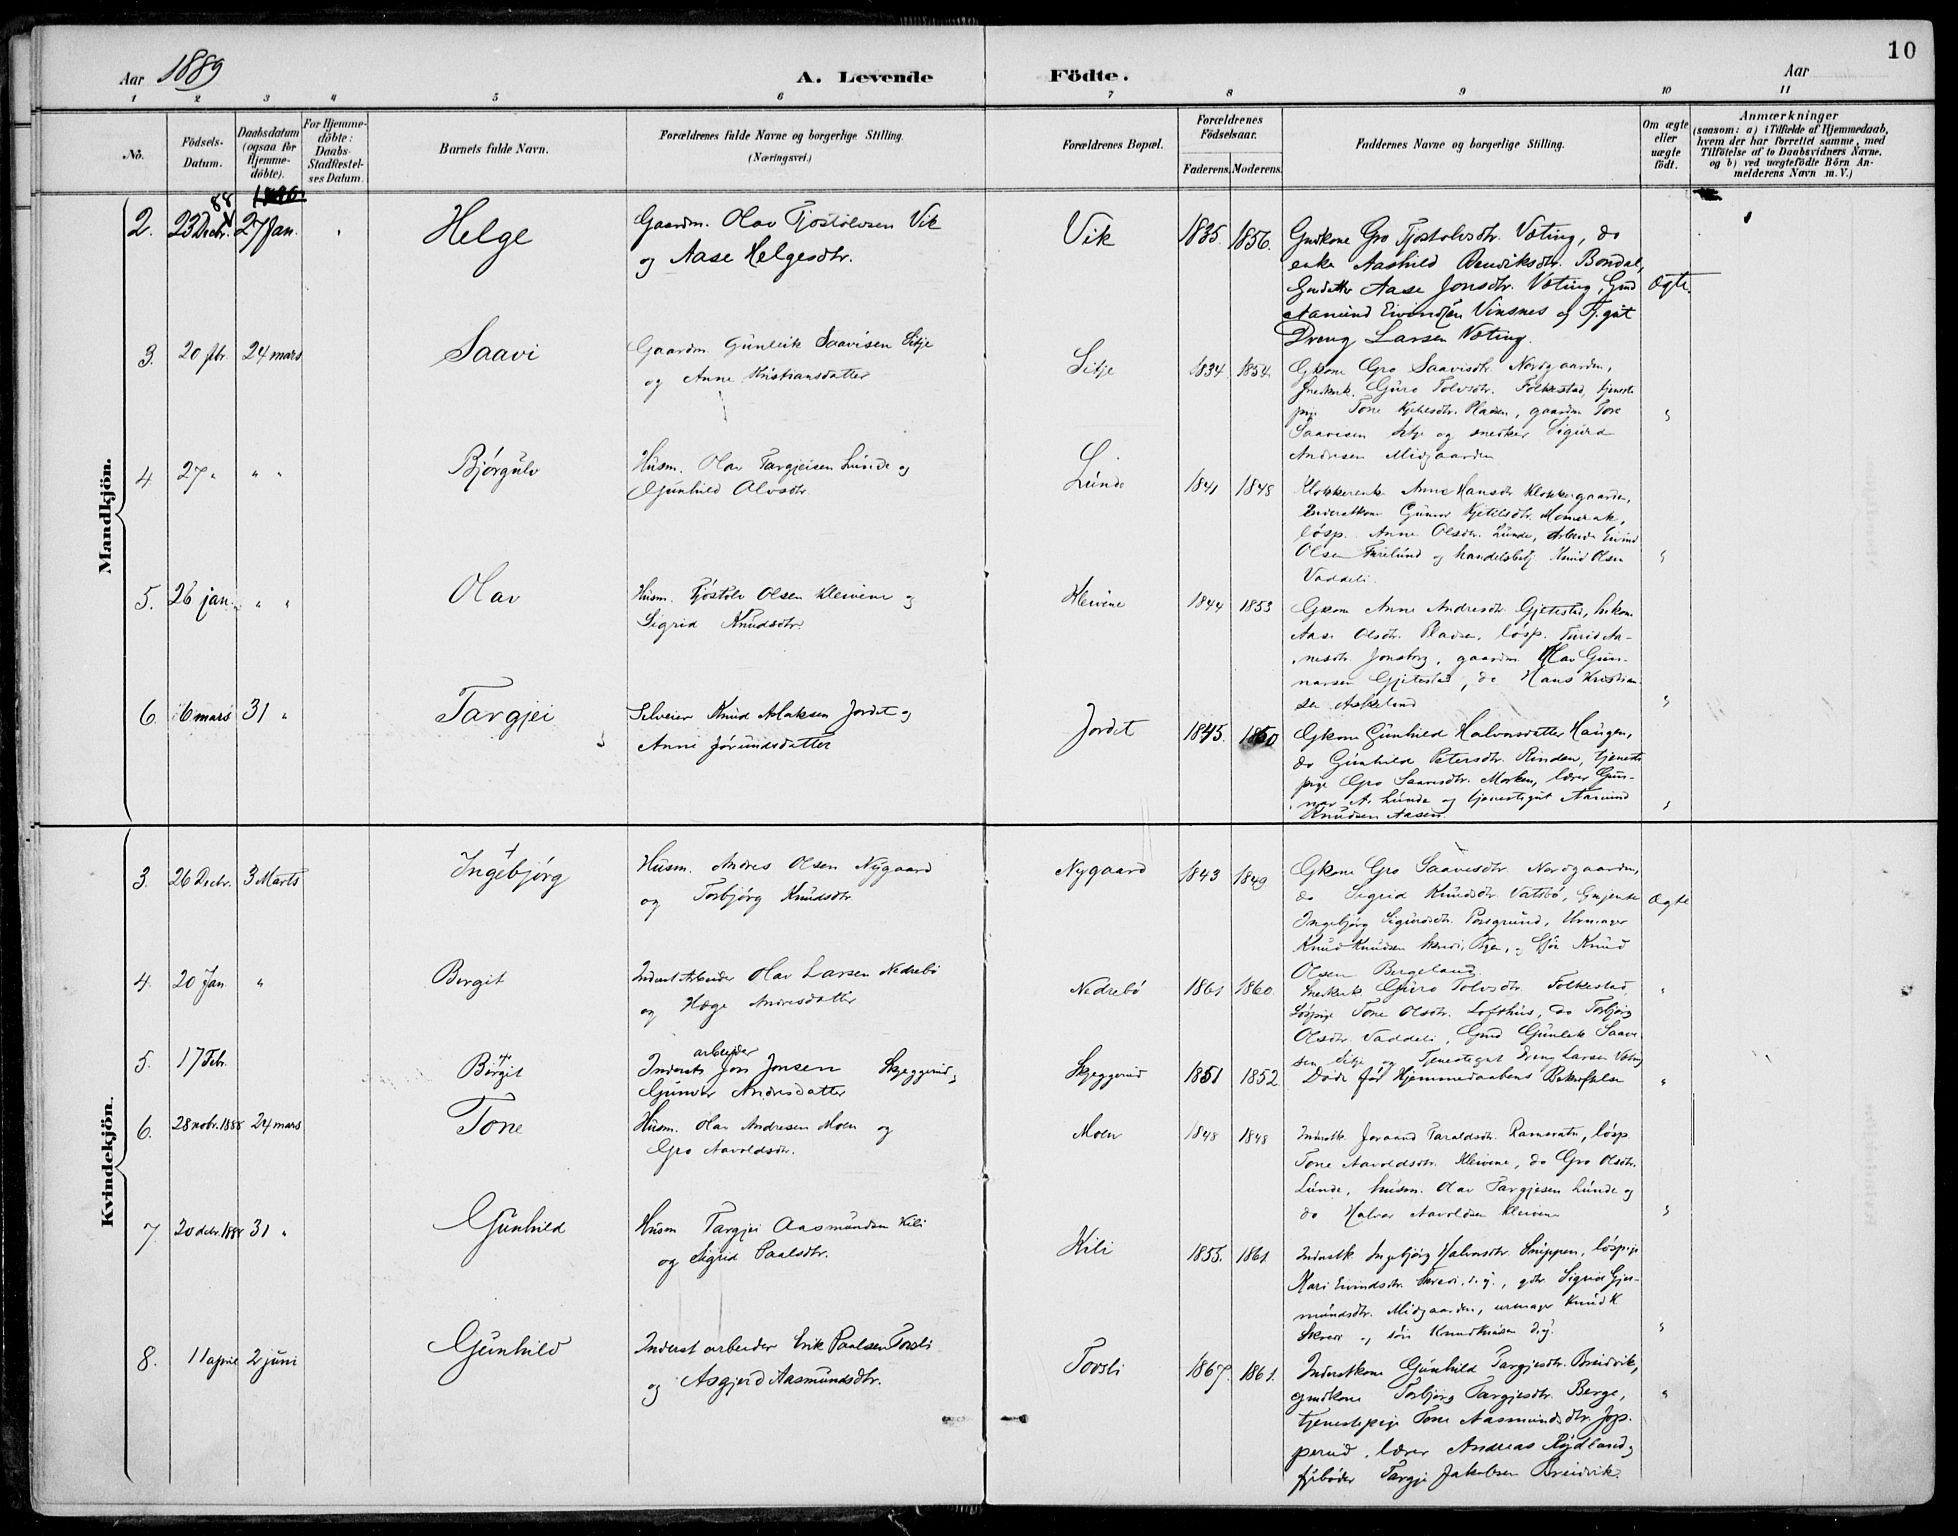 10
Aar 1889
A. Levende Födte.
Aar
1 2 3 4 5 6 7 8 9 10 11
No.
Födsels-Datum.
Daabsdatum (ogsaa for Hjemme-döbte).
For Hjemme-döbte: Daabs-Stadfæstel-ses Datum.
Barnets fulde Navn.
Forældrenes fulde Navne og borgerlige Stilling.
(Næringsvei.)
Forældrenes Bopæl.
Forældrenes Födselsaar.
Faderens. Moderens.
Faddernes Navne og borgerlige Stilling.
Om ægte eller uægte födt.
Anmærkninger
(saasom: a) i Tilfælde af Hjemmedaab,
hvem der har forrettet samme, med
Tilföielse af to Daabsvidners Navne,
og b) ved uægtefödte Börn An-
melderens Navn m. V.)
Mandkjön.
2. 23 Decbr. 88 27 Jan. Helge
Gaardm. Olav Tjostolvsen Vik
og Aase Helgesdtr.
Vik 1835. 1856.
Gmdkone Gro Tjostolvsdtr. Væting, do
enke Aashild Bendiksdtr. Bondal,
Gmdatter Aase Jonsdtr. Væting, Gmd
Aamund Eivindsen Vinsnes og Tj.gut
Dreng Larsen Væting.
Ægte.
3. 20 fbr. 24 mars Saavi
Gaardm. Gunleik Saavisen Sitje
og Anne Kristiansdatter
Sitje 1834 1854.
Gkone Gro Saavisdtr. Nordgaarden,
Snedkerk. Guro Tolvsdtr. Folkestad, tjeneste
pige Tone Kjetilsdtr. Pladsen, gaardm. Tore
Saavisen Sitje og snedker Sigurd
Andresen Midgaarden
4. 27 " " " Bjørgulv
Husm. Olav Targjeisen Lunde og
Gunhild Olvsdtr
Lunde 1841 1848
Klokkerenke Anne Hansdtr Klokkergaarden,
Inderstkone Gunvor Kjetilsdtr. Momrak,
løsp. Anne Olsdtr. Lunde, Arbeider Eivind
Olsen Furelund og handelsbetj. Knud Olsen
Vaddeli.
5. 26 jan. " " Olav
Husm. Tjøstolv Olsen Kleivene og
Sigrid Knudsdtr.
Kleivene 1844 1853
Gkone Anne Andresdtr. Gjetestad,
Aase Olsdtr. Pladsen, løsp. Turid Aa-
nesdtr. Jonsborg, gaardm. Olav Gun-
narsen Gjetestad, do Hans Kristian-
sen Askeland
6. 6 mars 31 " Targjei
Selveier Knud Aslaksen Jordet og
Anne Jørundsdatter
Jordet 1845. 1850
Gkone Gunhild Halvorsdatter Haugen,
do Gunhild Petersdtr. Rinden, tjeneste
pige Gro Saavisdtr. Morken, lærer Gun-
nar A. Lunde og tjenestegut Aamund
Knudsen Aasen.
Kvindekjön.
3. 26 Decbr. 3 Marts Ingebjørg
Husm. Andres Olsen Nygaard
og Torbjørg Knudsdtr
Nygaard 1843 1849
Gkone Gro Saavesdtr. Nordgaarden,
do Sigrid Knudsdtr. Vatsbö, Gmjente
Ingebjørg Sigurdsdtr. Porsgrund, Urmager
Knud Knudsen Skredi, Eger, og Gjör Knud
Olsen Bergeland
Ægte
4. 20 Jan. " Bergit
Inderst Arbeider Olav Larsen Nedrebö
og Hæge Andresdatter
Nedrebö 1861 1860.
Snedkerk. Guro Tolvsdtr. Folkestad,
Løspige Tone Olsdtr. Lofthus, do Torbjörg
Olsdtr. Vaddeli, Gmd Gunleik Saave
sen Sitje og Tjenestegut Dreng Larsen Væting
5. 17 Febr. Bergit
Inderst arbeider Jon Jonsen Skjeggerud,
Gunvor Andresdatter
Skjeggerud 1851 1852
Döde før Hjemmedaabens Bekræftelse
6. 28 nobr. 1888 24 mars Tone
Husm. Olav Andresen Moen og
Gro Aavoldsdtr.
Moen 1848 1848
Inderstk. Joraand Taraldsdtr. Ramsvatn, løsp.
Tone Aavoldsdtr. Kleivene, do Gro Olsdtr.
Lunde, husm. Olav Targjesen Lunde og
do Halvor Aavoldsen Kleivene
7. 20 decbr. 1888 31 " Gunhild
Husm Targjei Aasmundsen Kili
og Sigrid Paalsdtr.
Kili 1855. 1861.
Inderstk Ingebjörg Halvorsdtr. Snippen, løspige
Mari Eivindsdtr. Skredi, d.y., gdtr. Sigrid Gjer-
mundsdtr. Midgaarden, urmager Knud K.
Skredi og søn Knud Knudsen d.y.
8. 11 april 2 juni Gunhild
Inderst arbeider Erik Paalsen Torsli
og Asgjerd Aasmundsdtr.
Torsli 1867. 1861.
Inderstkone Gunhild Targjesdtr. Breidvik,
gmdkone Torbjörg Targjesdtr. Berge,
tjenestepige Tone Aasmundsdtr. Jop-
perud, lærer Andreas Röjdland og
fjøbøder Targje Jakobsen Breidvik.